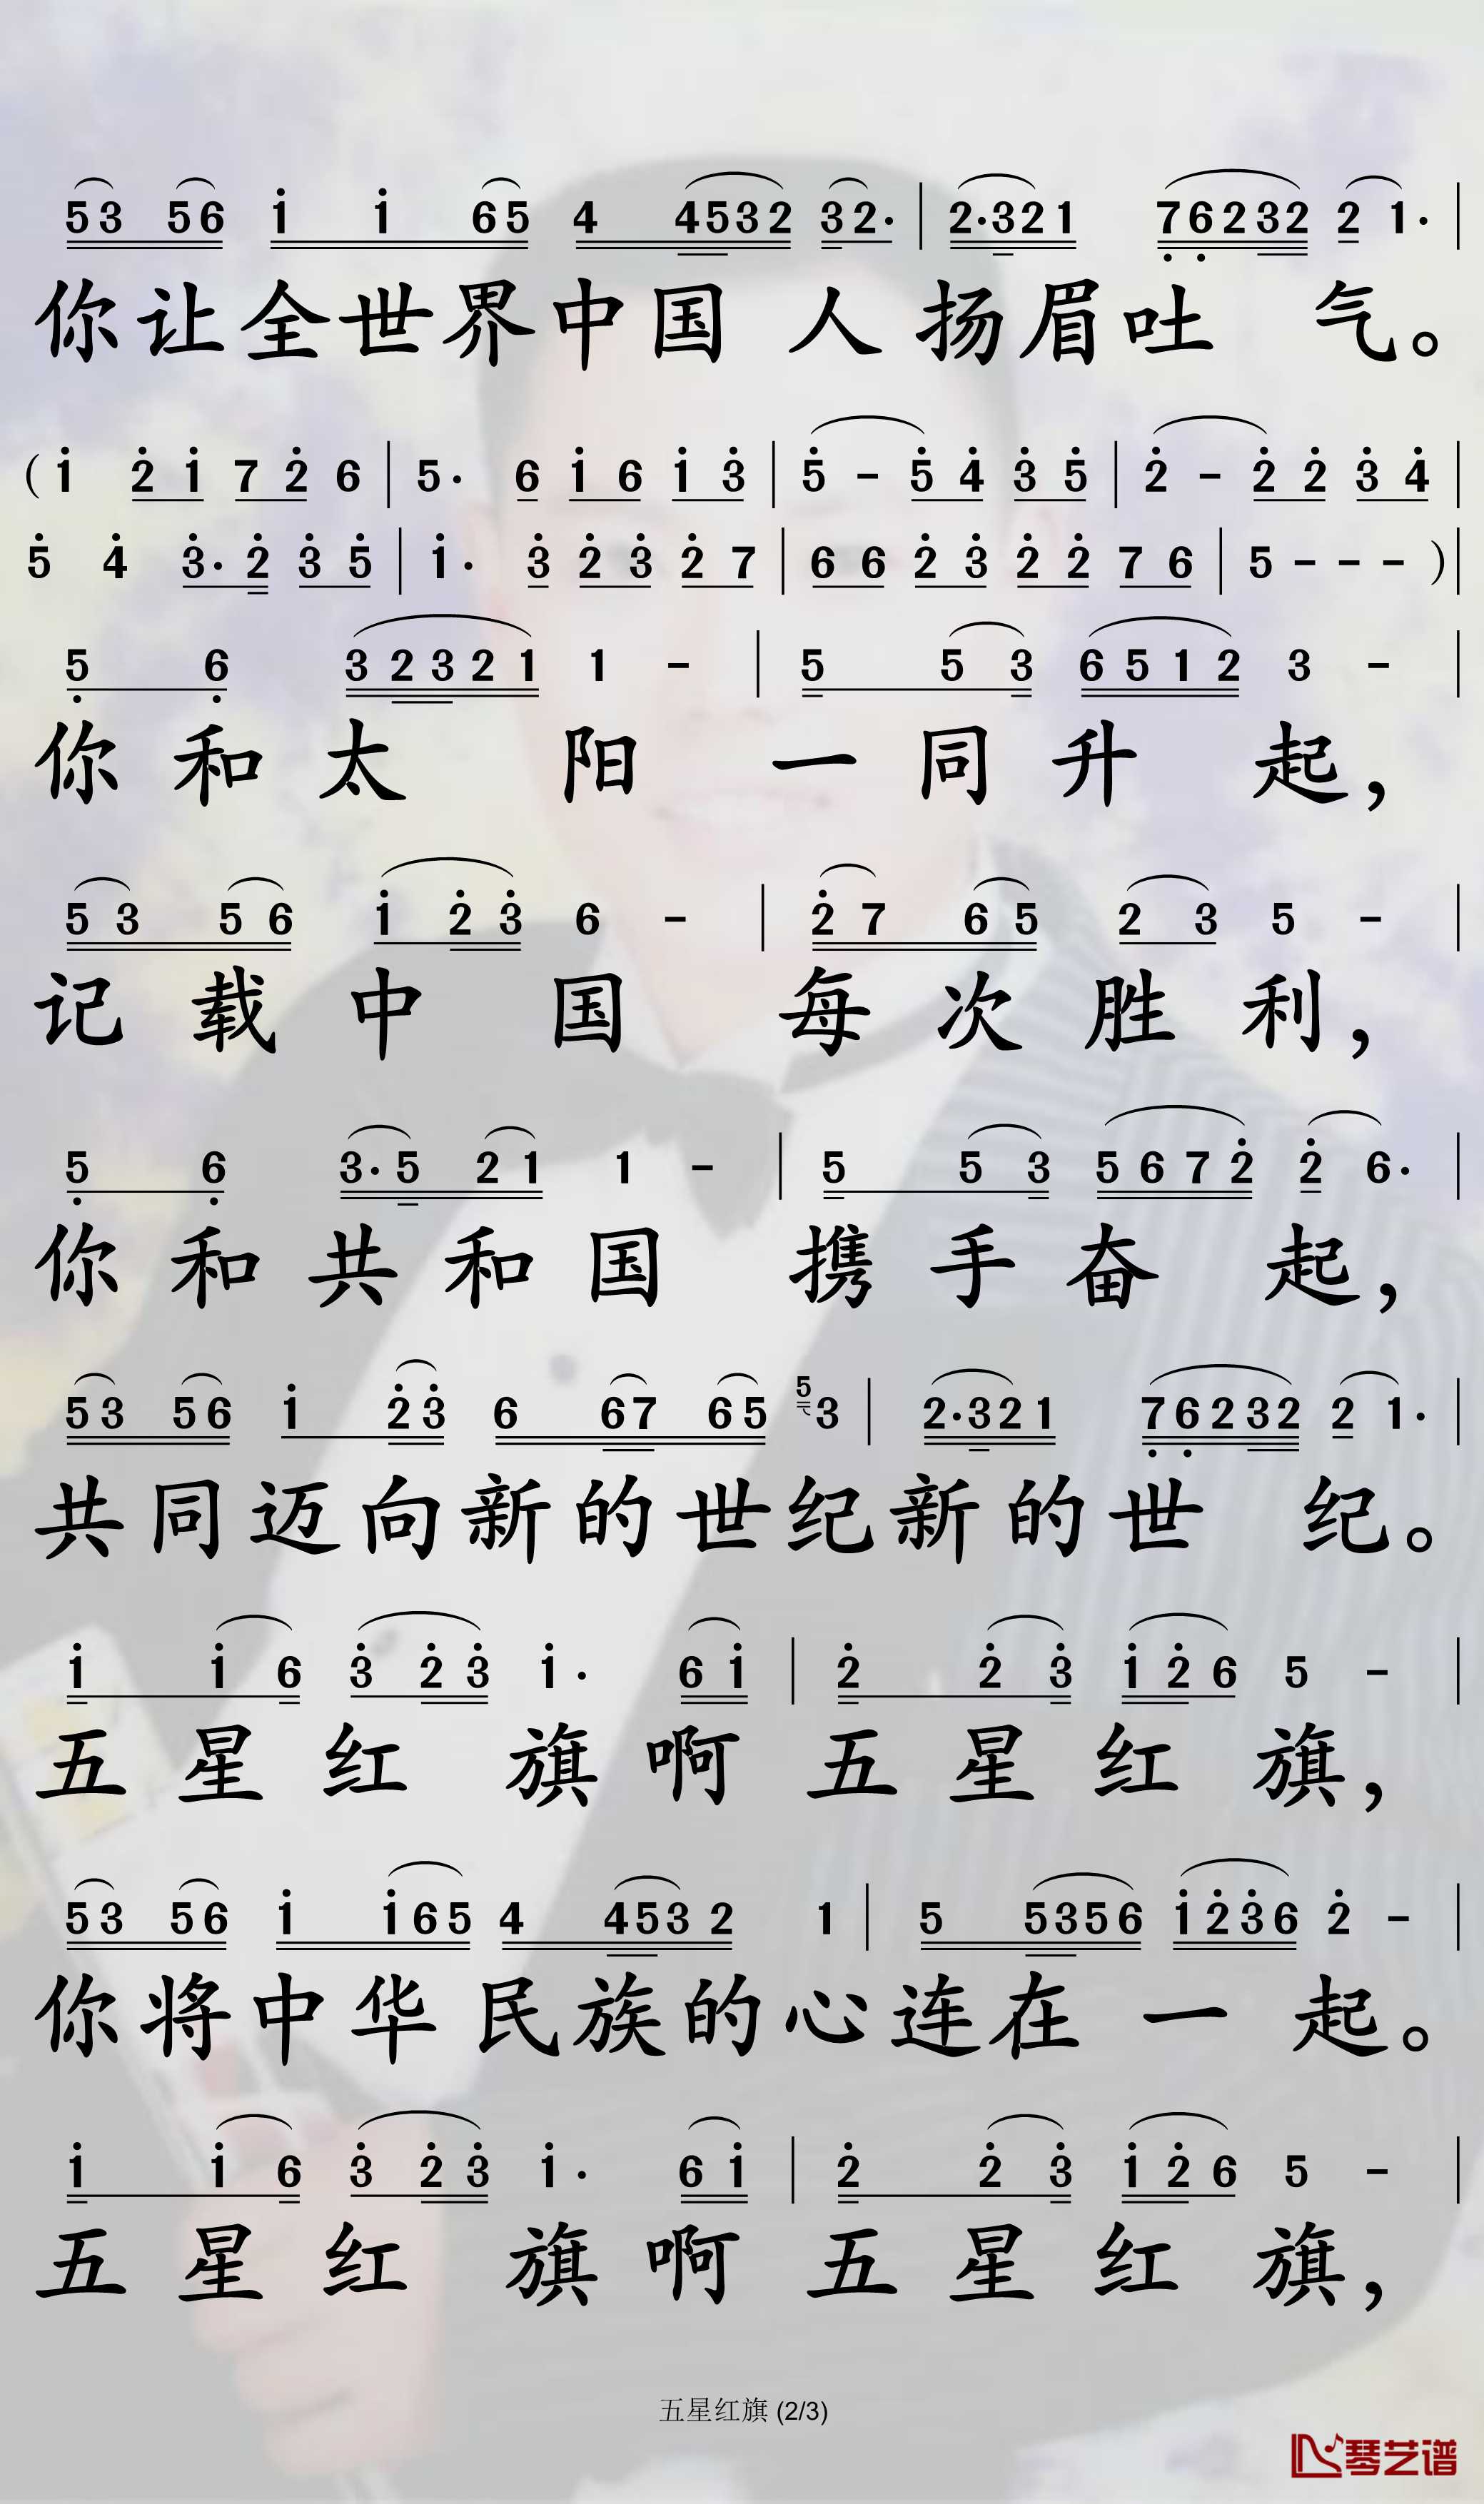 5 3 5 6 1 1 6 5 4 4 5 3 2 3 2· | 2·3 2 1 7 6 2 3 2 2 1· |
你让全世界中国 人 扬眉吐 气。
( 1 2 1 7 2 6 | 5· 6 1 6 1 3 | 5 - 5 4 3 5 | 2 - 2 2 3 4 |
5 4 3· 2 3 5 | 1· 3 2 3 2 7 | 6 6 2 3 2 2 7 6 | 5 - - - ) |
5 6 3 2 3 2 1 1 - | 5 5 3 6 5 1 2 3 - |
你 和 太 阳 一 同 升 起，
5 3 5 6 1 2 3 6 - | 2 7 6 5 2 3 5 - |
记 载 中 国 每 次 胜 利，
5 6 3· 5 2 1 1 - | 5 5 3 5 6 7 2 2 6· |
你 和 共 和 国 携 手 奋 起，
5 3 5 6 1 2 3 6 6 7 6 5 5 3 | 2·3 2 1 7 6 2 3 2 2 1· |
共 同 迈 向 新 的 世 纪 新 的 世 纪。
1 1 6 3 2 3 1· 6 1 | 2 2 3 1 2 6 5 - |
五 星 红 旗 啊 五 星 红 旗，
5 3 5 6 1 1 6 5 4 4 5 3 2 1 | 5 5 3 5 6 1 2 3 6 2 - |
你 将 中 华 民 族 的 心 连 在 一 起。
1 1 6 3 2 3 1· 6 1 | 2 2 3 1 2 6 5 - |
五 星 红 旗 啊 五 星 红 旗，
五星红旗 (2/3)
琴艺谱